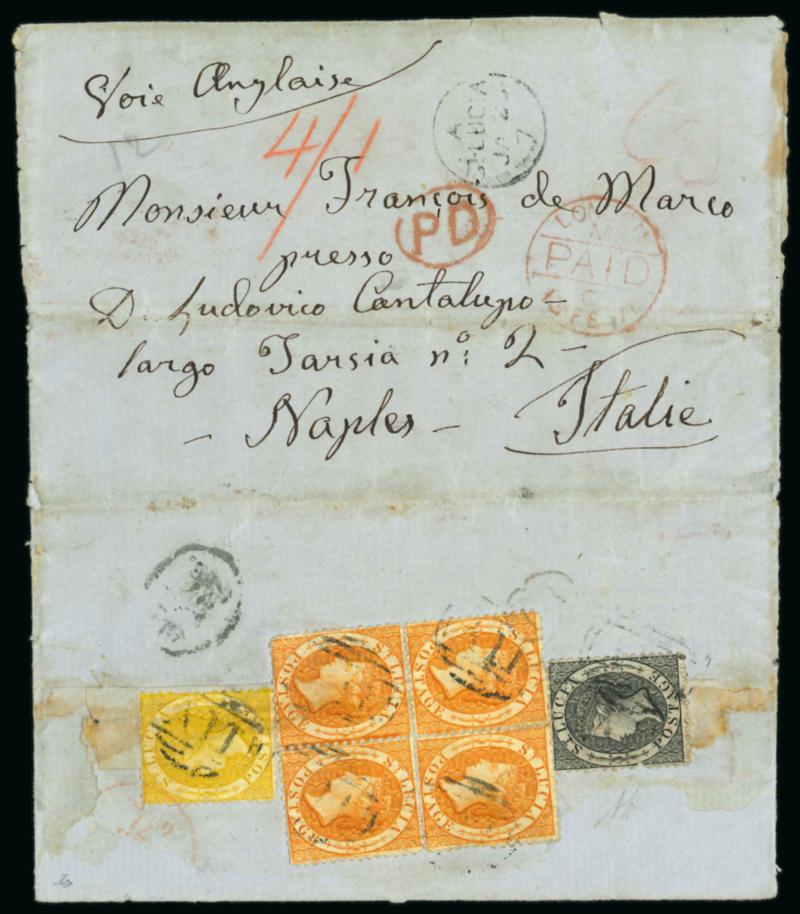 Voie Anglaise
4/1
A
ST. LUCIA
Monsieur François de Marco
PD
PAID
presso
D. Ludovico Cantalupo -
largo Tarsia nº 2 -
- Naples - Italie
ST LUCIA POSTAGE
ST LUCIA POSTAGE
ST LUCIA POSTAGE
ST LUCIA POSTAGE
ST LUCIA POSTAGE
ST LUCIA POSTAGE